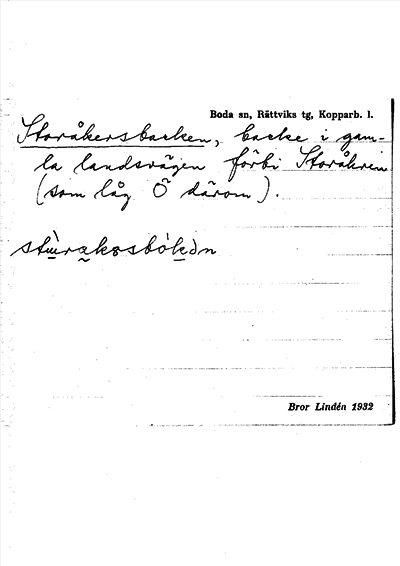 Boda sn, Rättviks tg, Kopparb. l.
Storåkersbacken, backe i gam-
la landsvägen förbi Storåkern
(som låg Ö därom).
Bror Lindén 1932